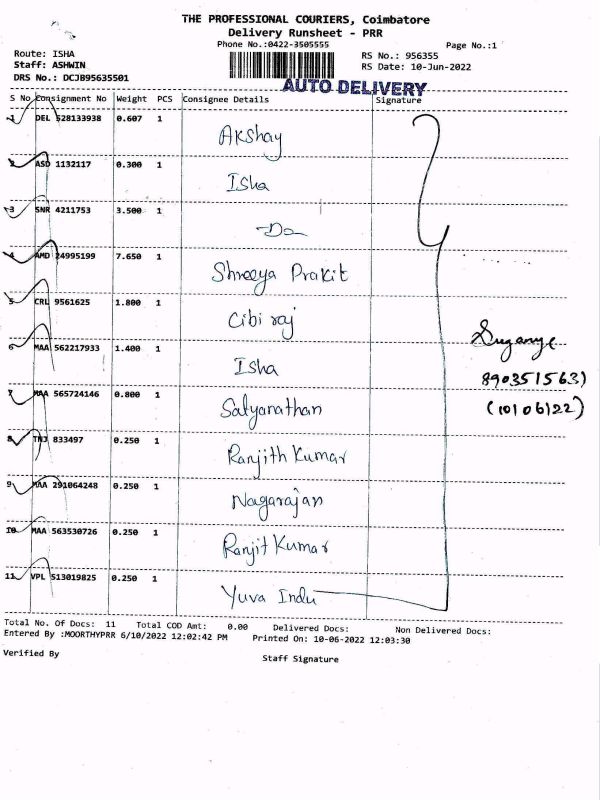 THE PROFESSIONAL COURIERS, Coimbatore
Delivery Runsheet - PRR
Phone No.:0422-3505555 Page No.:1
Route: ISHA RS No.: 956355
Staff: ASHWIN RS Date: 10-Jun-2022
DRS No.: DCJB95635501
AUTO DELIVERY
S No Consignment No Weight PCS Consignee Details Signature
1 DEL 528133938 0.607 1 Akshay
2 ASD 1132117 0.300 1 Isha
3 SNR 4211753 3.500 1 Do
4 AMD 24995199 7.650 1 Shreeya Prakit
5 CRL 9561625 1.800 1 Cibi raj
6 MAA 562217933 1.400 1 Isha
7 MAA 565724146 0.800 1 Satyanathan
8 TNJ 833497 0.250 1 Ranjith Kumar
9 MAA 291064248 0.250 1 Nagarajan
10 MAA 563530726 0.250 1 Ranjit Kumar
11 VPL 513019825 0.250 1 Yuva Indu
(10/06/22)
Total No. Of Docs: 11 Total COD Amt: 0.00 Delivered Docs: Non Delivered Docs:
Entered By :MOORTHYPRR 6/10/2022 12:02:42 PM Printed On: 10-06-2022 12:03:30
Verified By Staff Signature